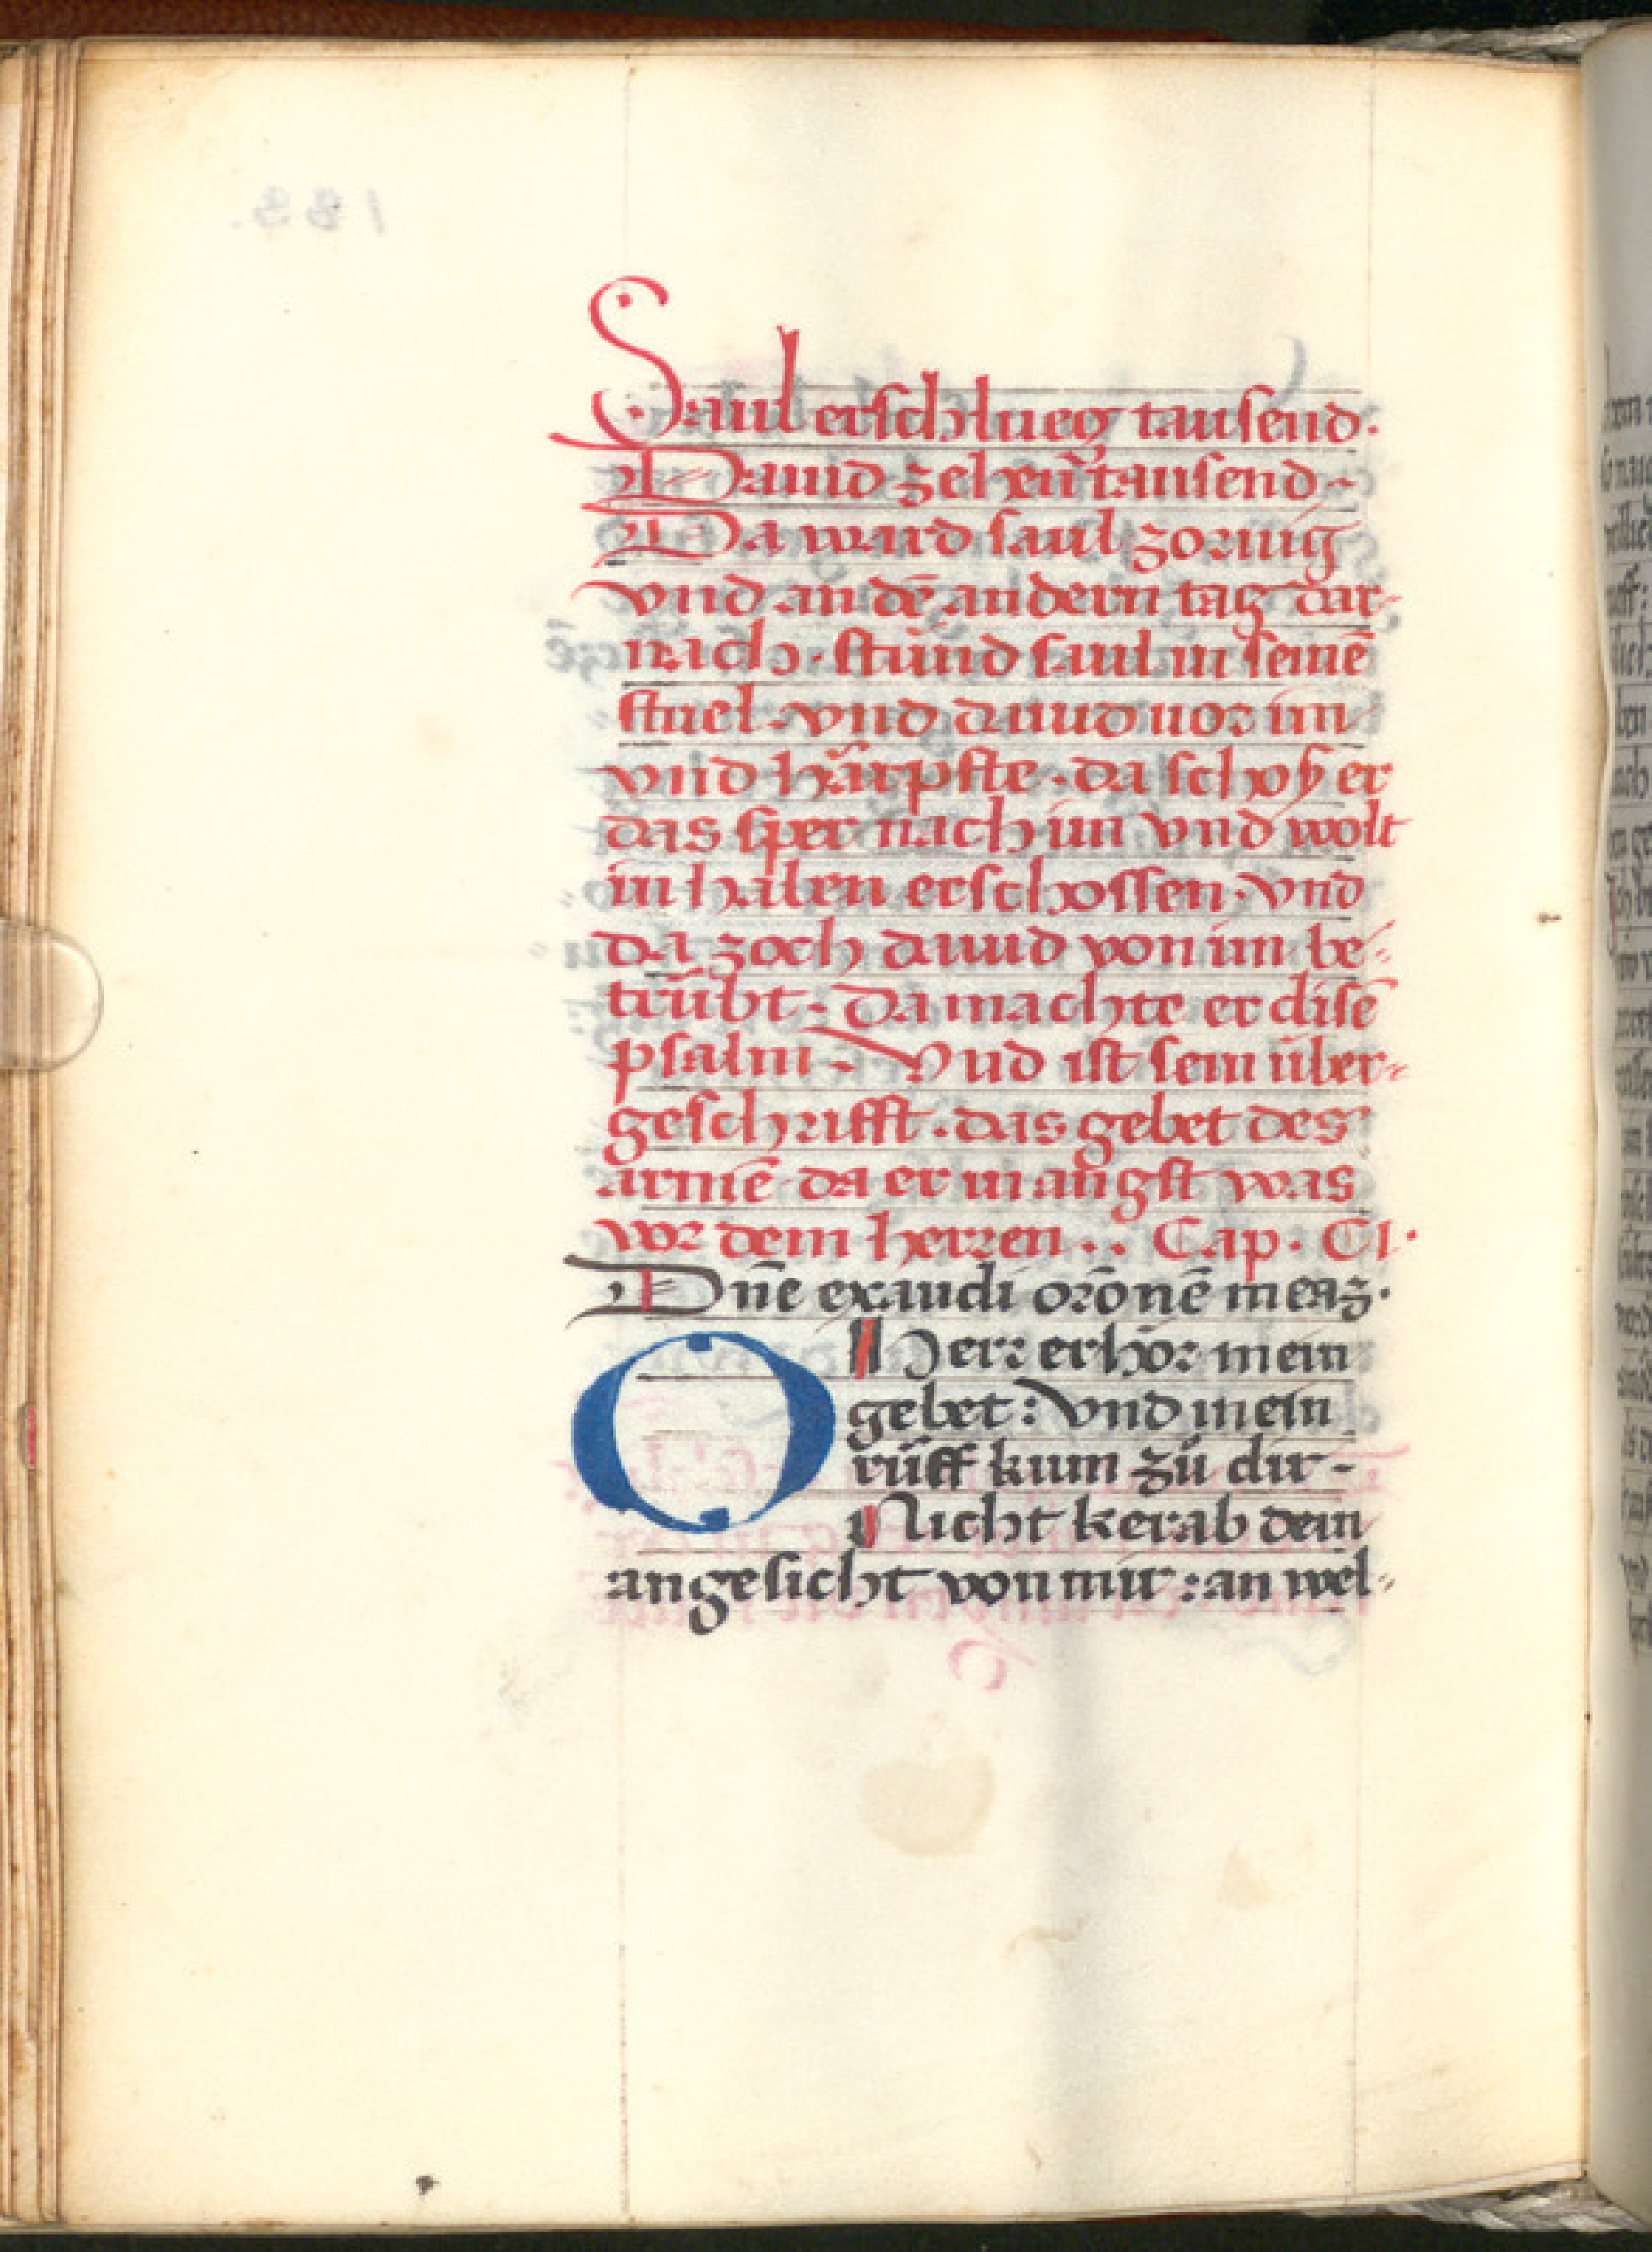 Saul erschlueg tausend·
Dauid zehen̄ tausend-
Da ward saul zornig
vnd an dē andern tag dar-
nach · stůnd saul in seinē
stuel · vnd dauid uor im
vnd harpfte · da schoß er
das sper nach im vnd wolt
in haben erschossen · vnd
da zoch dauid von im be-
trůbt · Da machte er disē
psalm - Vnd ist sein über-
geschrifft · das gebet des
armē da er in angst was
vor dem herren ·· Cap · CI ·
Dn̄e exaudi orōnē meaz ·
O Herr erhör mein
gebet : vnd mein
růff kum zů dir -
Nicht ker ab dein
angesicht von mir : an wel-